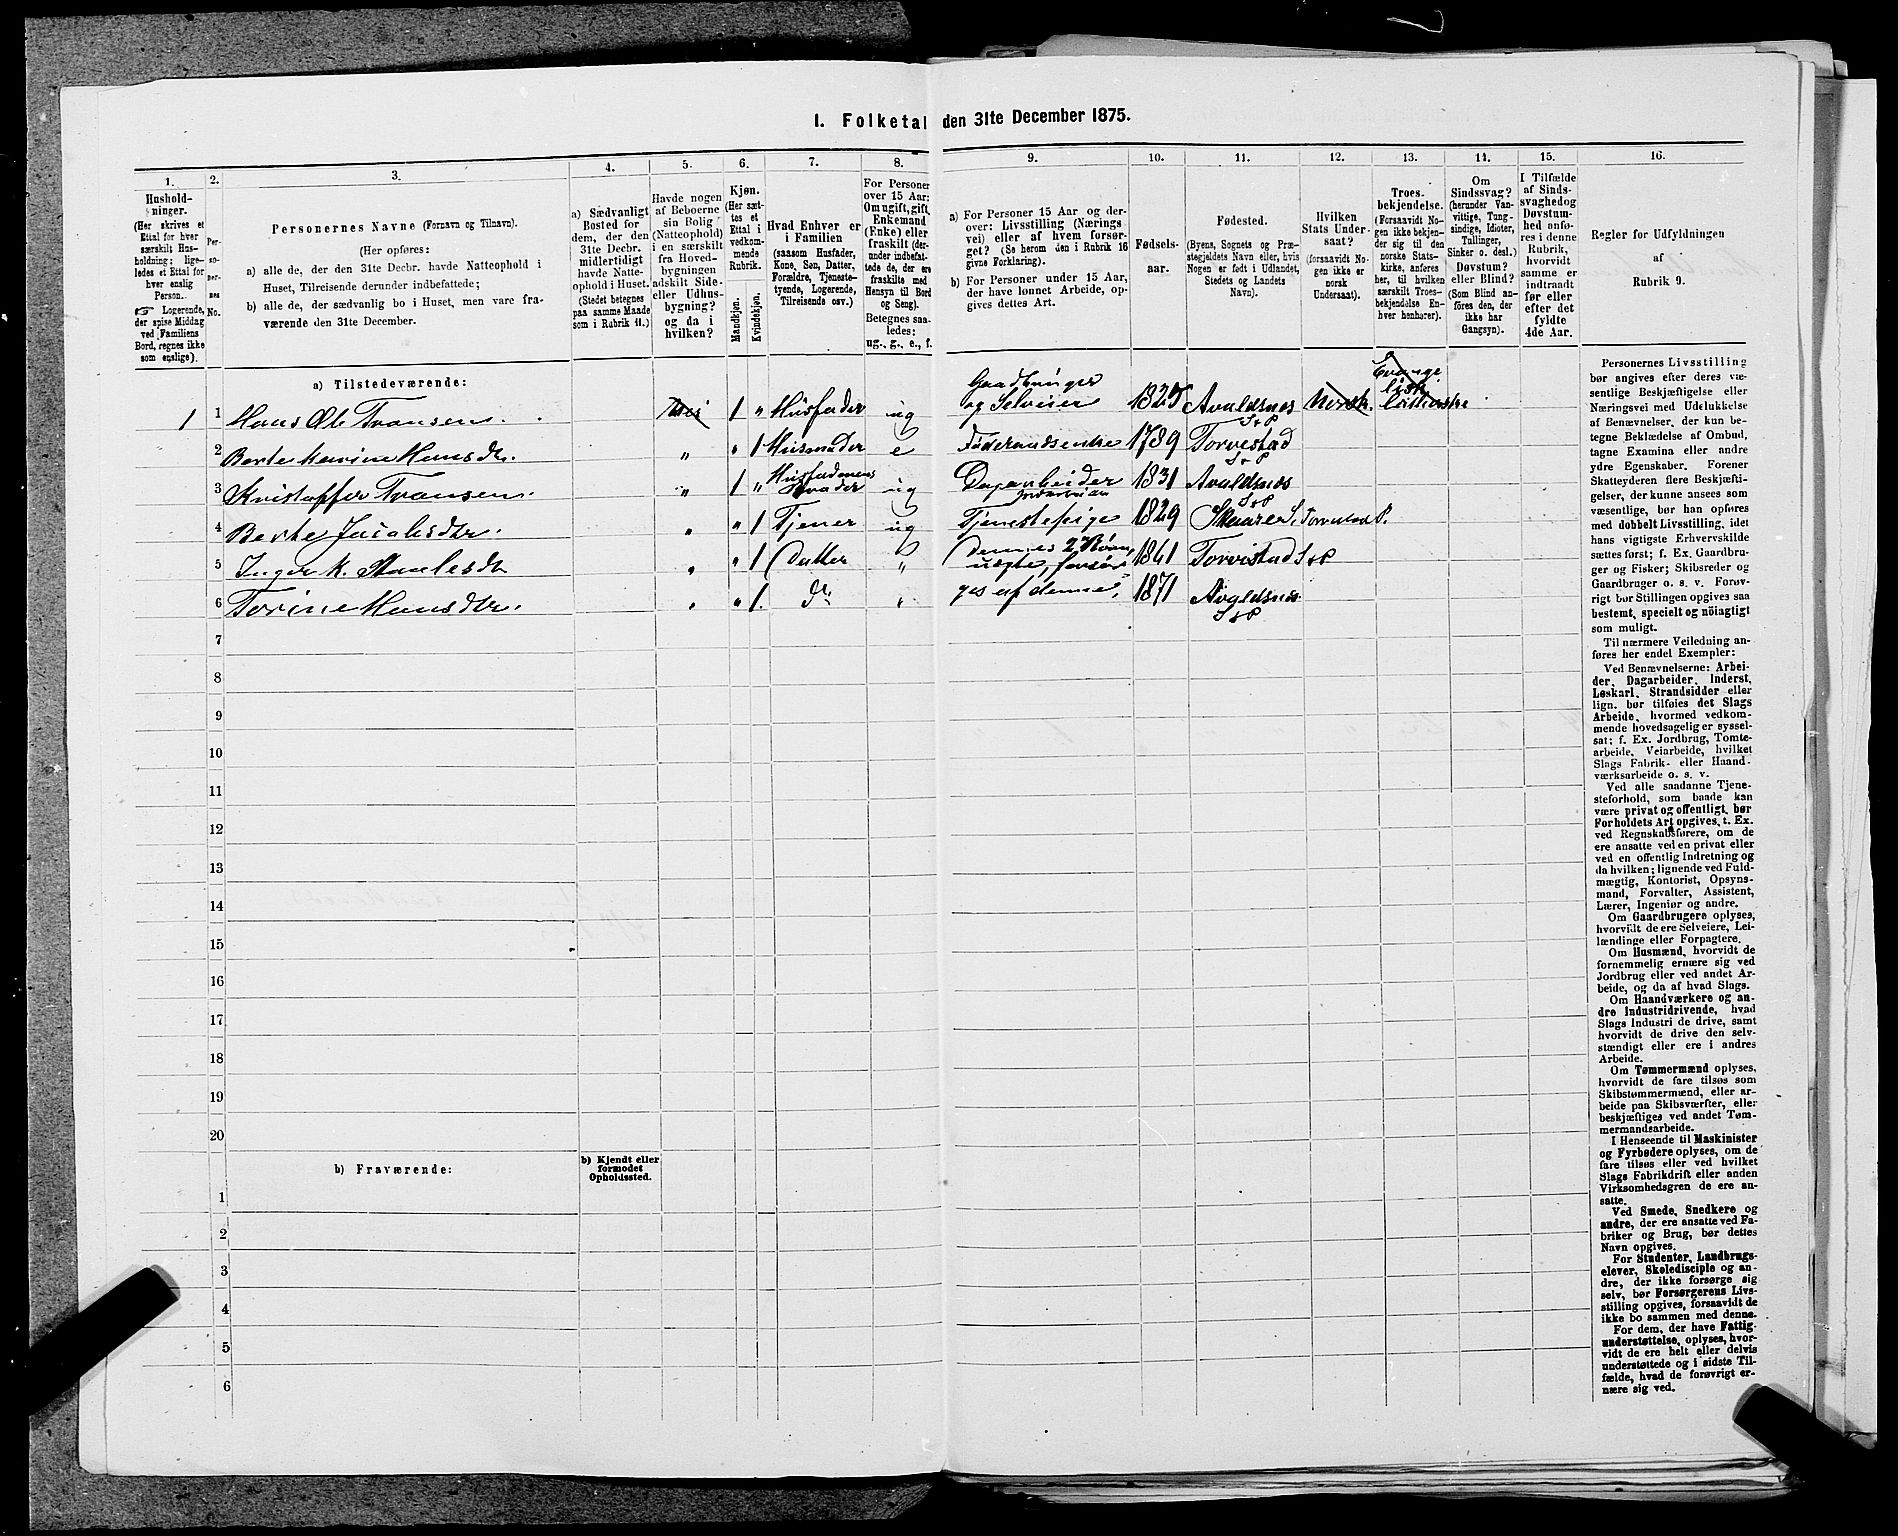 I. Folketal den 31te December 1875.
1.
2.
3.
4.
5.
6.
7.
8.
9.
10.
11.
12.
13.
14.
15.
16.
Hushold-
ninger.
(Her skrives et
Ettal for hver
særskilt Hus-
holdning; lige-
ledes et Ettal for
hver enslig
Person.
☞ Logerende,
der spise Middag
ved Familiens
Bord, regnes ikke
som enslige).
Per-
so-
per-
nes
No.
Personernes Navne (Fornavn og Tilnavn).
(Her opføres:
a) alle de, der den 31te Decbr. havde Natteophold i
Huset, Tilreisende derunder indbefattede;
b) alle de, der sædvanlig bo i Huset, men vare fra-
værende den 31te December.
a) Sædvanligt
Bosted for
dem, der den
31te Decbr.
midlertidigt
havde Natte-
ophold i Huset.
(Stedet betegnes
paa samme Maade
som i Rubrik 11.)
Havde nogen
af Beboerne
sin Bolig
(Natteophold)
i en særskilt
fra Hoved-
bygningen
adskilt Side-
eller Udhus-
bygning?
og da i
hvilken?
Kjøn.
(Her sæt-
tes et
Ettal i
vedkom-
mende
Rubrik.
Mandkjøn.
Kvindekjøn.
Hvad Enhver er
i Familien
(saasom Husfader,
Kone, Søn, Datter,
Forældre, Tjeneste-
tyende, Logerende,
Tilreisende osv.)
For Personer
over 15 Aar:
Om ugift, gift,
Enkemand
(Enke) eller
fraskilt (der-
under indbefat-
tede de, der ere
fraskilte med
Hensyn til Bord
og Seng).
Betegnes saa-
ledes:
ug., g., e., f.
a) For Personer 15 Aar og der-
over: Livsstilling (Nærings
vei) eller af hvem forsør-
get? (Se herom den i Rubrik 16
givne Forklaring).
b) For Personer under 15 Aar,
der have lønnet Arbeide, op-
gives dettes Art.
Fødsels-
aar.
Fødested.
(Byens, Sognets og Præ-
stegjeldets Navn eller, hvis
Nogen er født i Udlandet,
Stedets og Landets
Navn).
Hvilken
Stats Under-
saat?
(forsaavidt No-
gen ikke er
norsk
Undersaat).
Troes-
bekjendelse.
(Forsaavidt No-
gen ikke bekjen-
der sig til den
norske Stats-
kirke, anføres
her, til hvilken
særskilt Troes-
bekjendelse En-
hver henhører).
Om
Sindssvag?
(herunder Van-
vittige, Tung-
sindige, Idioter,
Tullinger,
Sinker o. desl.)
Døvstum?
eller Blind?
(Som Blind an-
føres den, der
ikke har
Gangsyn).
I Tilfælde
af Sinds-
svaghed og
Døvstum-
hed anfø-
res i denne
Rubrik,
hvorvidt
samme er
indtraadt
før eller
efter det
fyldte
4de Aar.
Regler for Udfyldningen
af
Rubrik 9.
a) Tilstedeværende:
1 1 Hans Ole Transen. Nei 1 " Husfader ug Gaardbruger og Selveier 1825 Avaldsnes S+P Norsk Evangelisk Lutherske
2 Berte Karine Hansdtr. " " 1 Husmoder e Føderaadsenke 1789 Torvestad S+P
3 Kristoffer Transen. " 1 " Husfaderens Broder ug Dagarbeider Jordarbeider 1831 Avaldsnes S+P
4 Berte Jacobsdtr. " " 1 Tjener ug Tjenestepige 1829 Skaare S, Torvestad P.
5 Inger K. " " 1 Datter " dennes 2 Børn, 1861 Torvestad S+P
6 Torine Hansdtr. " " 1. Do " uægte, forsørges af denne, 1871 Avaldsnes S+P
7
8
9
10
11
12
13
14
15
16
17
18
19
20
b) Fraværende:
b) Kjendt eller
formodet
Opholdssted.
1
2
3
4
5
6
Personernes Livsstilling
bør angives efter deres væ-
sentlige Beskjæftigelse eller
Næringsvei med Udelukkelse
af Benævnelser, der kun be-
tegne Beklædelse af Ombud,
tagne Examina eller andre
ydre Egenskaber. Forener
Skatteyderen flere Beskjæfti-
gelser, der kunne ansees som
væsentlige, bør han opføres
med dobbelt Livsstilling, idet
hans vigtigste Erhvervskilde
sættes først; f. Ex. Gaardbru-
ger og Fisker; Skibsreder og
Gaardbruger o. s. v. Forøv-
rigt bør Stillingen opgives saa
bestemt, specielt og nöiagtigt
som muligt.
Til nærmere Veiledning an-
føres her endel Exempler:
Ved Benævnelserne: Arbei-
der, Dagarbeider, Inderst,
Løskarl, Strandsidder eller
lign. bør tilføies det Slags
Arbeide, hvormed vedkom-
mende hovedsagelig er syssel-
sat; f. Ex. Jordbrug, Tomte-
arbeide, Veiarbeide, hvilket
Slags Fabrik- eller Haand-
værksarbeide o. s. v.
Ved alle saadanne Tjene-
steforhold, som baade kan
være privat og offentligt, bør
Forholdets Art opgives, t. Ex.
ved Regnskabsførere, om de
ere ansatte ved en privat eller
ved en offentlig Indretning og
da hvilken; lignende ved Fuld-
mægtig, Kontorist, Opsyns-
mand, Forvalter, Assistent,
Lærer, Ingeniør og andre.
Om Gaardbrugere oplyses,
hvorvidt de ere Selveiere, Lei-
lændinge eller Forpagtere.
Om Husmænd, hvorvidt de
fornemmelig ernære sig ved
Jordbrug eller ved andet Ar-
beide, og da af hvad Slags.
Om Haandværkere og an-
dre Industridrivende, hvad
Slags Industri de drive, samt
hvorvidt de drive den selv-
stændigt eller ere i andres
Arbeide.
Om Tømmermænd oplyses,
hvorvidt de fare tilsøs som
Skibstømmermænd, eller ar-
beide paa Skibsværfter, eller
beskjæftiges ved andet Tøm-
mermandsarbeide.
I Henseende til Maskinister
og Fyrbødere oplyses, om de
fare tilsøs eller ved hvilket
Slags Fabrikdrift eller anden
Virksomhedsgren de ere an-
satte.
Ved Smede, Snedkere og
andre, der ere ansatte ved Fa-
briker og Brug, bør dettes
Navn opgives.
For Studenter, Landbrugs-
elever, Skoledisciple og an-
dre, der ikke forsørge sig
selv, bør Forsørgerens Livs-
stilling opgives, forsaavidt de
ikke bo sammen med denne.
For dem, der have Fattig-
understøttelse, oplyses, hvor-
vidt de ere helt eller delvis
understøttede og i sidste Til-
fælde, hvad de forøvrigt er-
nære sig ved.